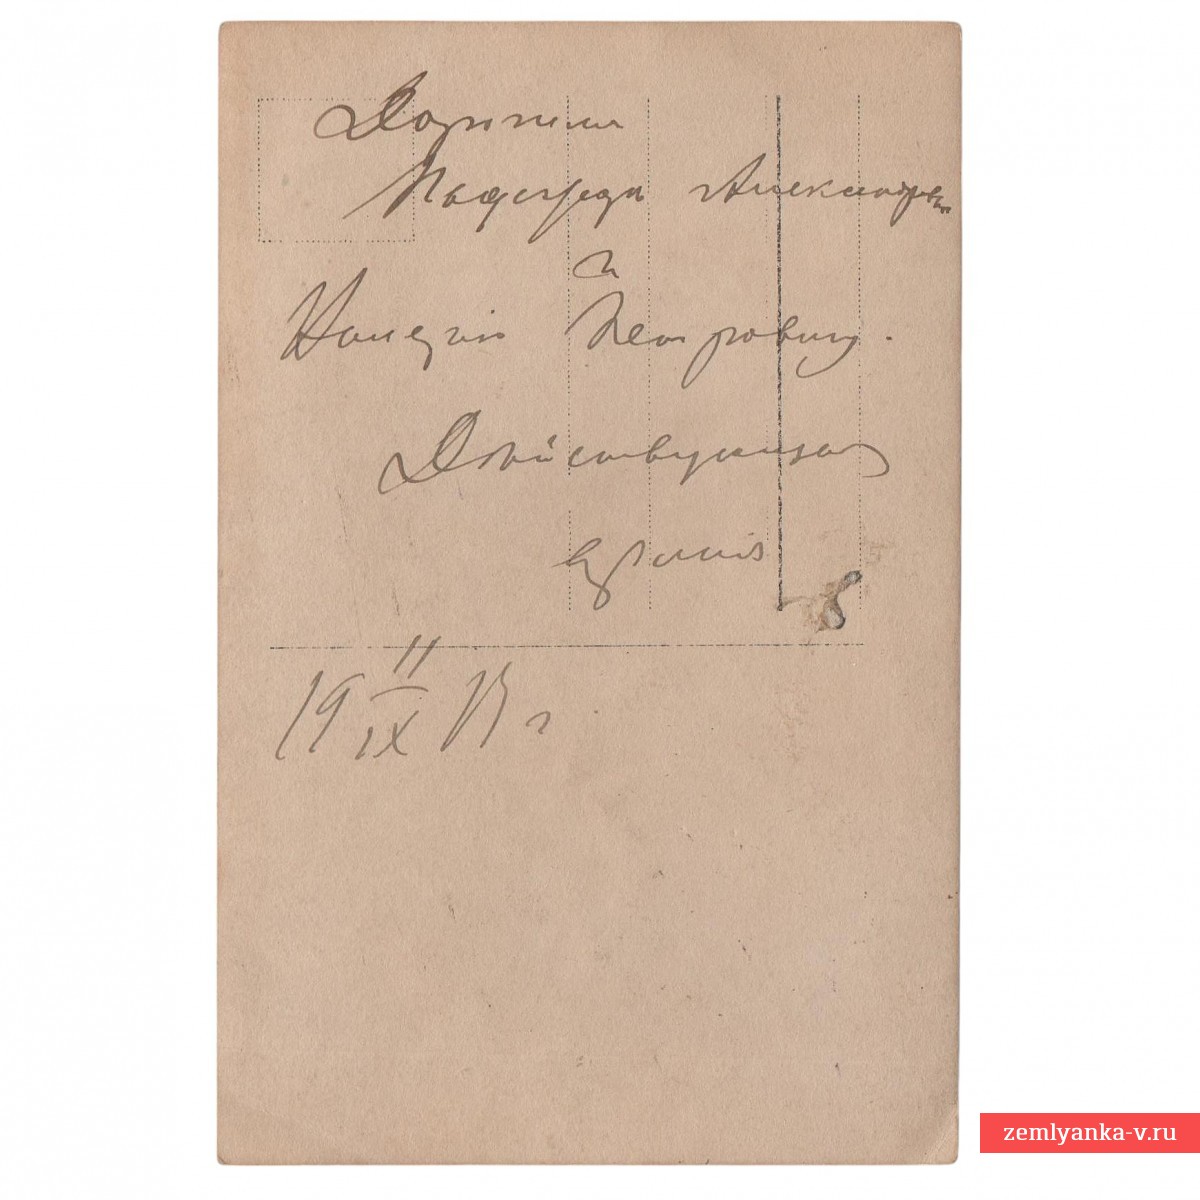 Дорогимъ
Александровн
и
Петровичу.
Действующая
армія
19 11/IX 15 г.
zemlyanka-v.ru